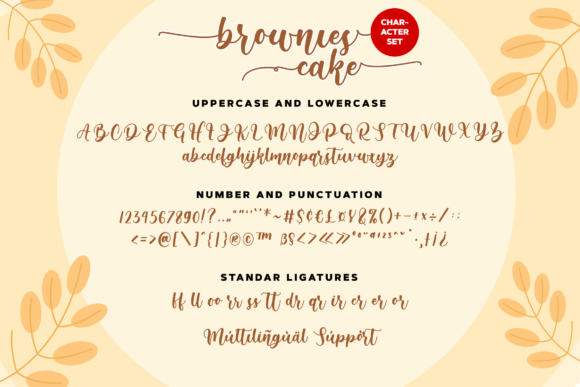 brownies
cake
CHAR-
ACTER
SET
UPPERCASE AND LOWERCASE
ABCDEFGHIJKLMNOPQRSTUVWXYZ
abcdefghijklmnopqrstuvwxyz
NUMBER AND PUNCTUATION
1234567890!?...,"“”‘’'*~-#$¢€£¤¥&%()+−±×÷/:;
<=>@[\]^{|}®©™ ßS<>«»
STANDAR LIGATURES
ff ll oo rr ss tt dr qr ir cr er or
Múltilingùàl Súppört